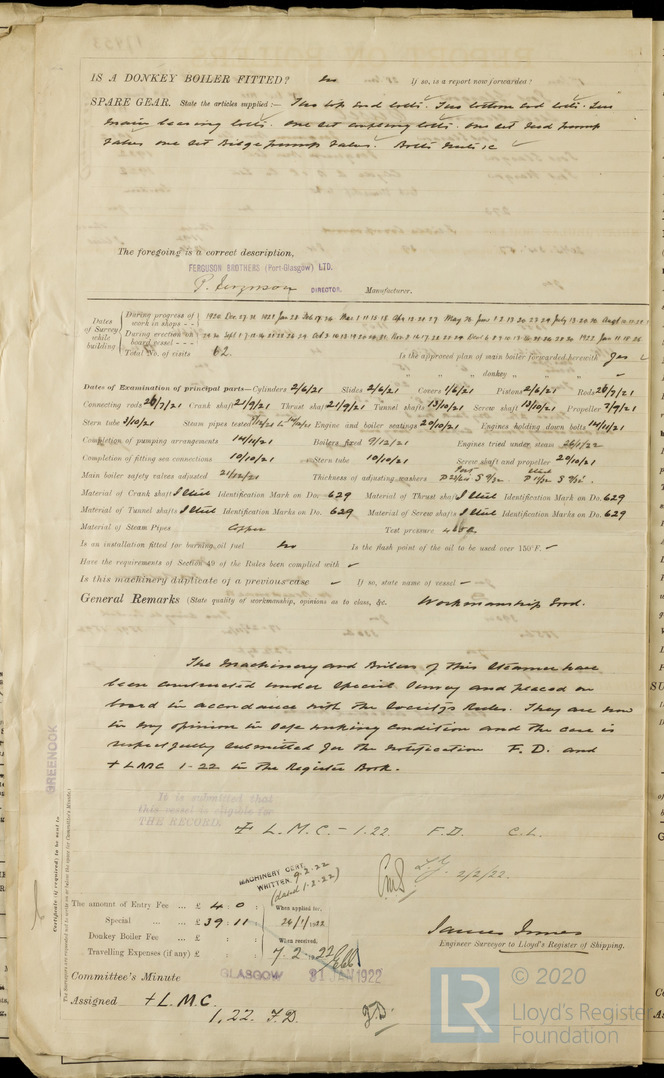 IS A DONKEY BOILER FITTED? no If so, is a report now forwarded?
SPARE GEAR. State the articles supplied:— Two top end bolts. Two bottom end bolts. Two
main bearing bolts. One set coupling bolts. One set feed pump
valves one set bilge pump valves. Bolts nuts &c
The foregoing is a correct description,
FERGUSON BROTHERS (Port-Glasgow) LTD.
P. Ferguson DIRECTOR. Manufacturer.
Dates of Survey while building
During progress of work in shops - -
During erection on board vessel - - -
Total No. of visits 62. Is the approved plan of main boiler forwarded herewith Yes
" " " donkey " " "
Dates of Examination of principal parts—Cylinders 2/6/21 Slides 2/6/21 Covers 1/6/21 Pistons 2/6/21 Rods 26/7/21
Connecting rods 26/7/21 Crank shaft 21/9/21 Thrust shaft 21/9/21 Tunnel shafts 13/10/21 Screw shaft 13/10/21 Propeller 7/9/21
Stern tube 3/10/21 Steam pipes tested Engine and boiler seatings 20/10/21 Engines holding down bolts 14/11/21
Completion of pumping arrangements 14/11/21 Boilers fixed 9/12/21 Engines tried under steam 26/1/22
Completion of fitting sea connections 10/10/21 Stern tube 10/10/21 Screw shaft and propeller 20/10/21
Main boiler safety valves adjusted 21/12/21 Thickness of adjusting washers
Material of Crank shaft I Steel Identification Mark on Do. 629 Material of Thrust shaft I Steel Identification Mark on Do. 629
Material of Tunnel shafts I Steel Identification Marks on Do. 629 Material of Screw shafts I Steel Identification Marks on Do. 629
Material of Steam Pipes Copper Test pressure 400
Is an installation fitted for burning oil fuel no Is the flash point of the oil to be used over 150°F.
Have the requirements of Section 49 of the Rules been complied with
Is this machinery duplicate of a previous case If so, state name of vessel
General Remarks (State quality of workmanship, opinions as to class, &c. Workmanship Good.
The Machinery and Boilers of this Steamer have
been constructed under Special Survey and placed on
board in accordance with the Society's Rules. They are now
in my opinion in safe working condition and the case is
respectfully submitted for the notification F. D. and
+ LMC 1-22 in the Register Book.
GREENOOK
It is submitted that
this vessel is eligible for
THE RECORD.
+ L. M. C. - 1.22. F.D. C.L.
2/2/22.
MACHINERY CERT.
WRITTEN. 9.2.22
(dated 1.2.22)
Certificate (if required) to be sent to
The amount of Entry Fee ... £ 4 : 0 : When applied for,
Special ... ... £ 39 : 11 : 26/1/1922
Donkey Boiler Fee ... £ : : When received,
Travelling Expenses (if any) £ : : 7. 2. 1922
James Innes
Engineer Surveyor to Lloyd's Register of Shipping.
Committee's Minute GLASGOW 31 JAN 1922
Assigned + L.M.C.
1,22. F.D.
LR
© 2020
Lloyd's Register
Foundation